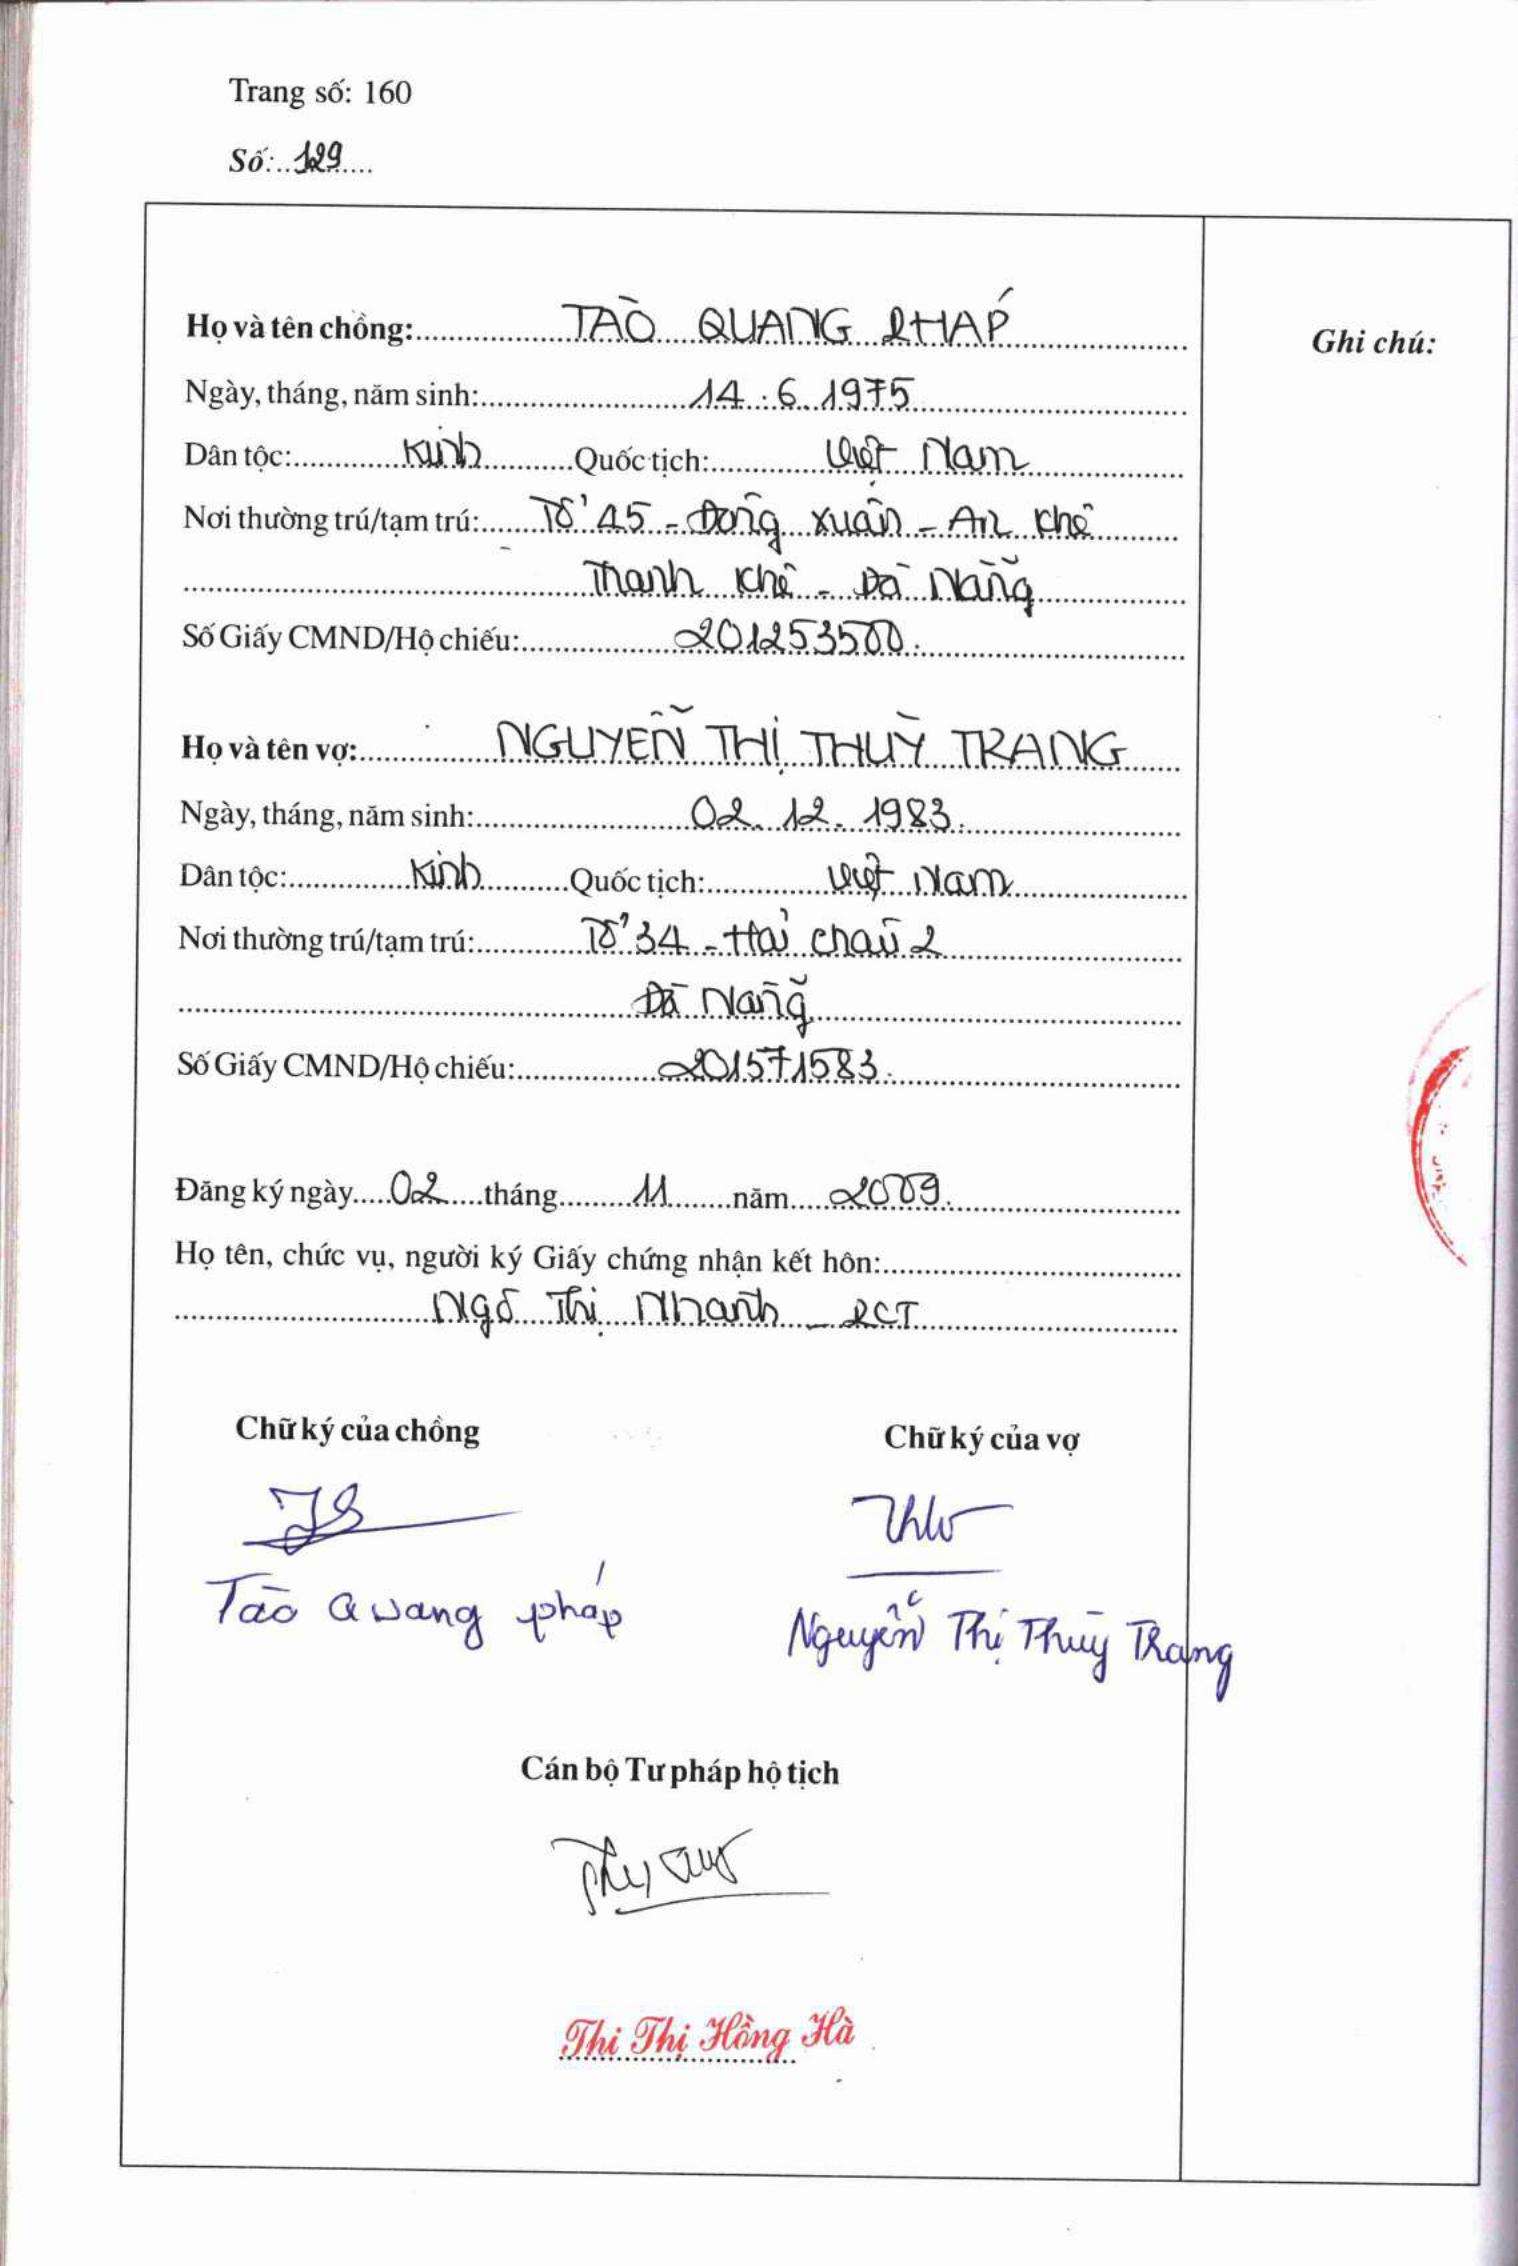 Trang số: 160
Số: 129
Họ và tên chồng: TÀO QUANG PHÁP
Ghi chú:
Ngày, tháng, năm sinh: 14.6.1975
Dân tộc: Kinh Quốc tịch: Việt Nam
Nơi thường trú/tạm trú: Tổ 45 - Đông Xuân - An Khê
Thanh Khê - Đà Nẵng
Số Giấy CMND/Hộ chiếu: 201253500
Họ và tên vợ: NGUYỄN THỊ THUỲ TRANG
Ngày, tháng, năm sinh: 02.12.1983
Dân tộc: Kinh Quốc tịch: Việt Nam
Nơi thường trú/tạm trú: Tổ 34 - Hải Châu 2
Đà Nẵng
Số Giấy CMND/Hộ chiếu: 201571583
Đăng ký ngày 02 tháng 11 năm 2009
Họ tên, chức vụ, người ký Giấy chứng nhận kết hôn:
Ngô Thị Nhanh - PCT
Chữ ký của chồng Chữ ký của vợ
Tào Quang Pháp
Nguyễn Thị Thuỳ Trang
Cán bộ Tư pháp hộ tịch
Thi Thị Hồng Hà